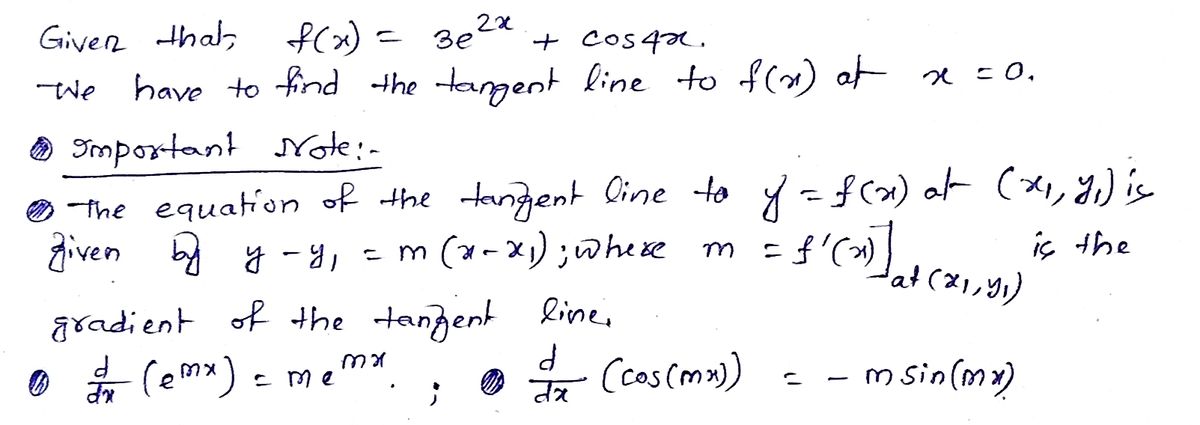 Given that, f(x) = 3e^{2x} + cos4x.
We have to find the tangent line to f(x) at x = 0.
Important Note:-
The equation of the tangent line to y = f(x) at (x₁, y₁) is
given by y - y₁ = m(x - x₁); where m = f'(x)]_{at (x₁, y₁)} is the
gradient of the tangent line.
d/dx (e^{mx}) = me^{mx}. ; d/dx (cos(mx)) = - m sin(mx)